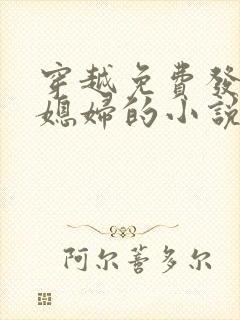 穿越免費發
媳婦的小說
阿尔蒈多尔